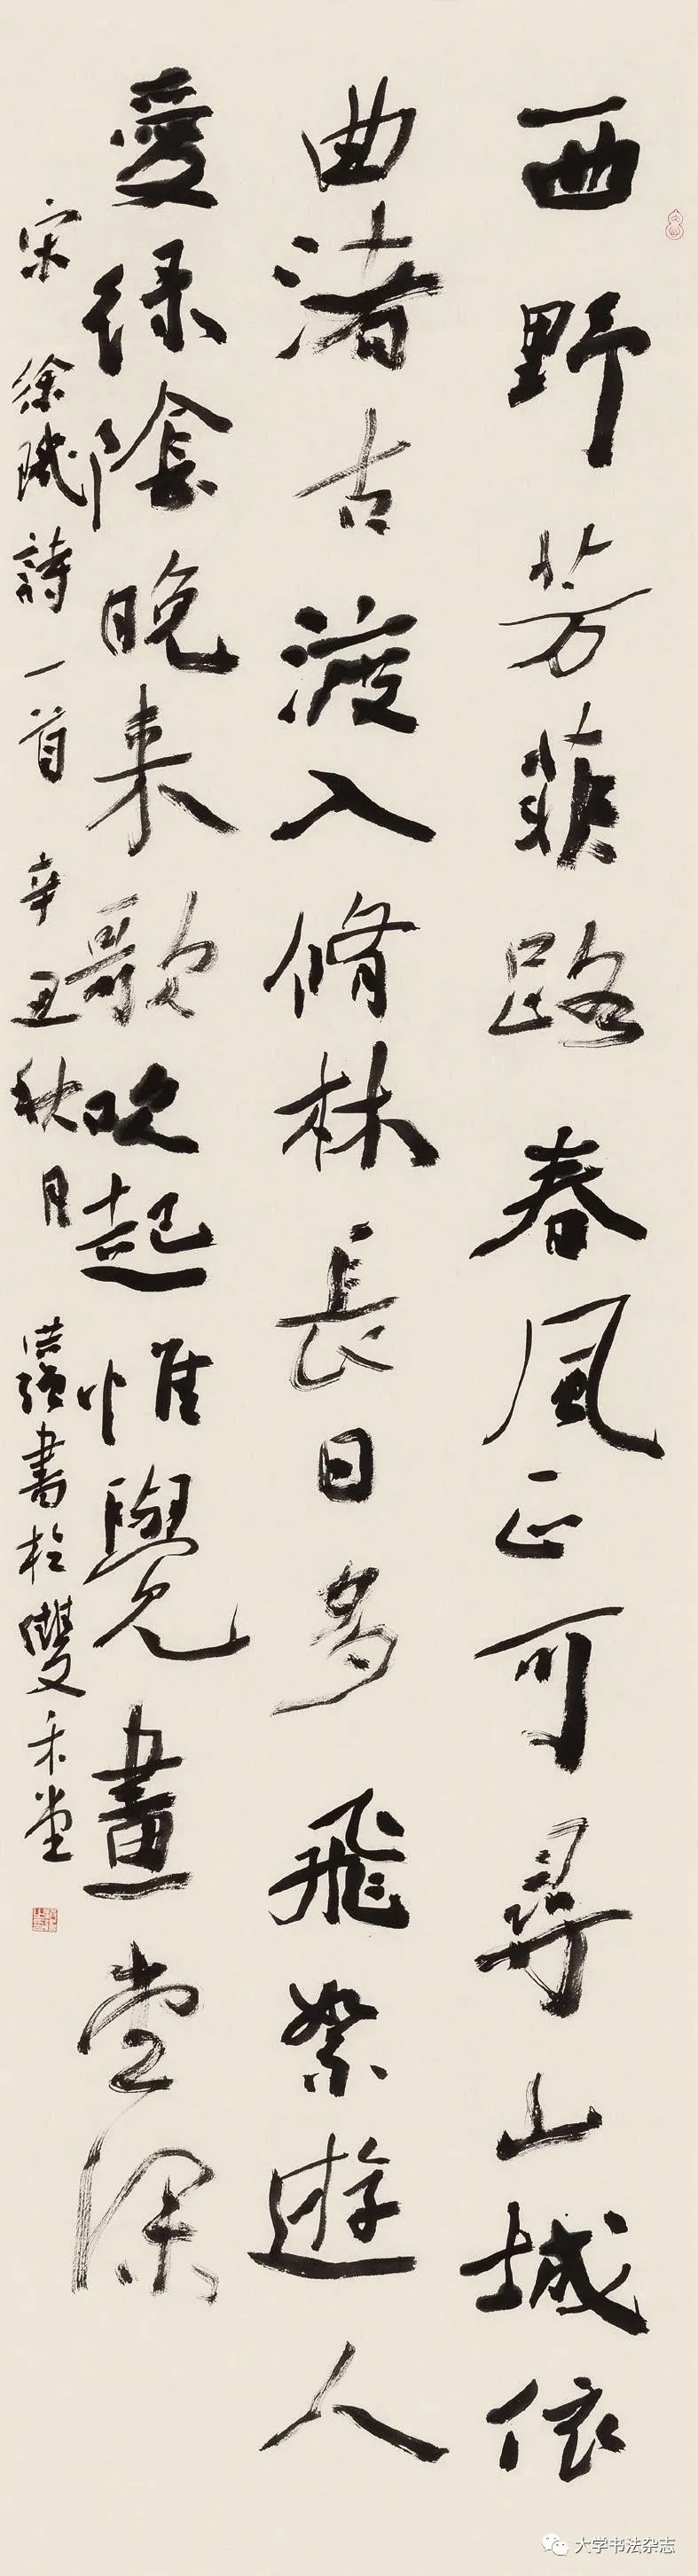 西野芳菲路春風正可尋山城依
曲渚古渡入脩林長日多飛絮遊人
愛綠陰晚来歌吹起惟覺畫堂深
宋徐璣詩一首辛丑秋月洪強書於雙禾堂
大学书法杂志